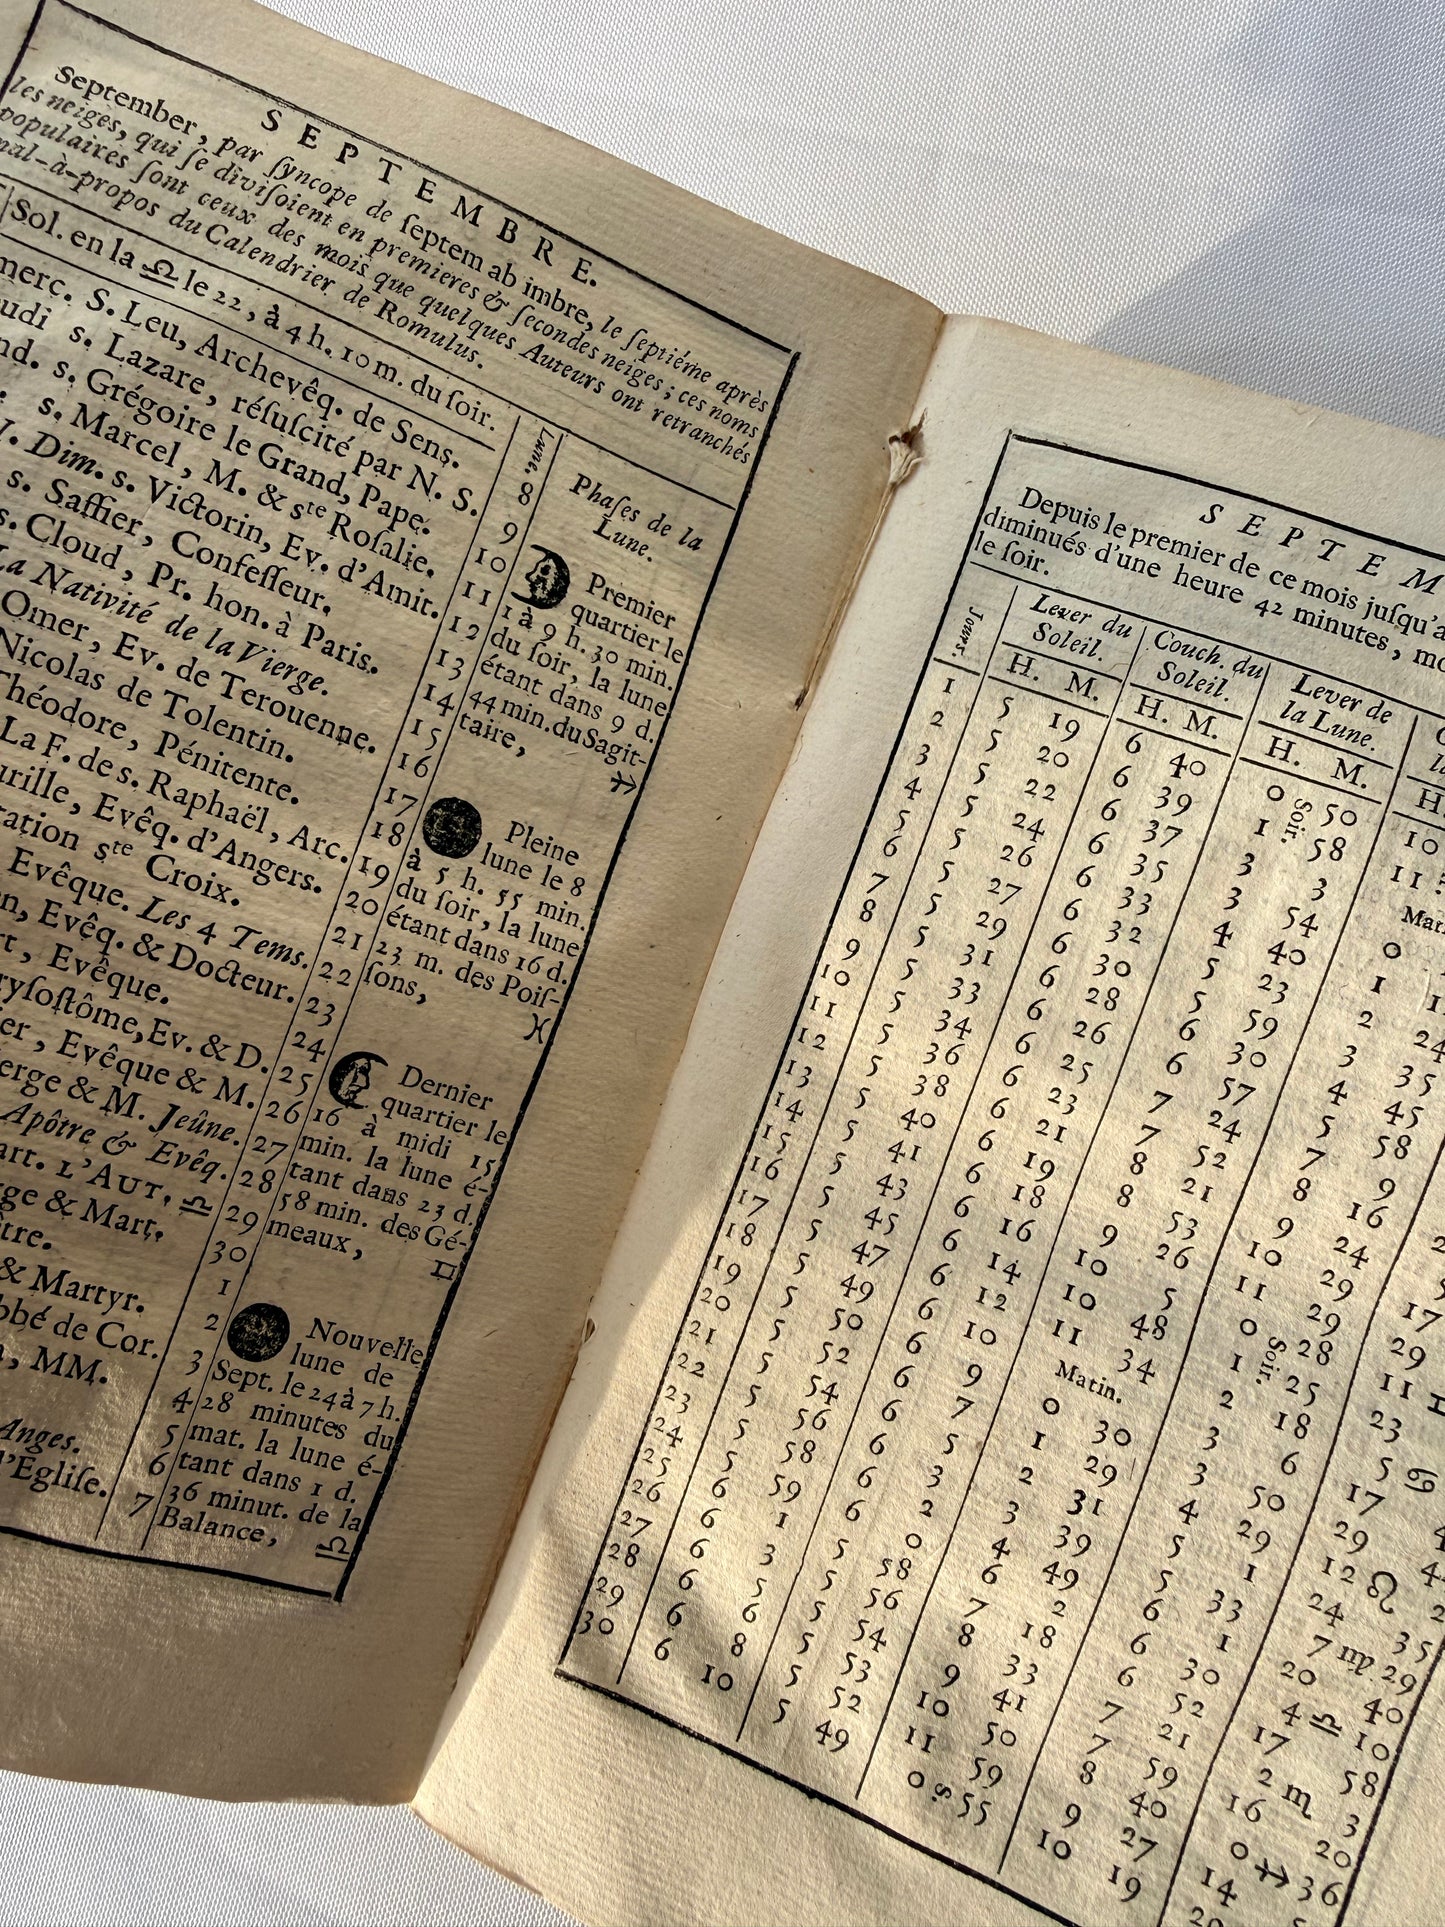 SEPTEMBRE.
September, par ſyncope de ſeptem ab imbre, le ſeptiéme après
les neiges, qui ſe diviſoient en premieres & ſecondes neiges; ces noms
populaires ſont ceux des mois que quelques Auteurs ont retranchés
mal-à-propos du Calendrier de Romulus.
Sol. en la ♎ le 22, à 4 h. 10 m. du ſoir.
Lune.
merc. S. Leu, Archevêq. de Sens. 8
udi s. Lazare, réſuſcité par N. S. 9
nd. s. Grégoire le Grand, Pape. 10
s. Marcel, M. & ste Roſalie. 11
Dim. s. Victorin, Ev. d'Amit. 12
s. Saffier, Confeſſeur. 13
s. Cloud, Pr. hon. à Paris. 14
La Nativité de la Vierge. 15
Omer, Ev. de Terouenne. 16
Nicolas de Tolentin. 17
Théodore, Pénitente. 18
La F. de s. Raphaël, Arc. 19
urille, Evêq. d'Angers. 20
ration ste Croix. 21
Evêque. Les 4 Tems. 22
n, Evêq. & Docteur. 23
rt, Evêque. 24
ryſoſtôme, Ev. & D. 25
er, Evêque & M. 26
erge & M. Jeûne. 27
Apôtre & Evêq. 28
art. L'AUT. ♎ 29
ge & Mart. 30
tre. 1
& Martyr. 2
bbé de Cor. 3
, MM. 4
5
Anges. 6
l'Egliſe. 7
Phaſes de la
Lune.
Premier
quartier le
1 à 9 h. 30 min.
du ſoir, la lune
étant dans 9 d.
44 min. du Sagit-
taire, ♐
Pleine
lune le 8
à 5 h. 55 min.
du ſoir, la lune
étant dans 16 d.
23 m. des Poiſ-
ſons, ♓
Dernier
quartier le
16 à midi 15
min. la lune é-
tant dans 23 d.
58 min. des Gé-
meaux, ♊
Nouvelle
lune de
Sept. le 24 à 7 h.
28 minutes du
mat. la lune é-
tant dans 1 d.
36 minut. de la
Balance, ♎
SEPTEM
Depuis le premier de ce mois juſqu'a
diminués d'une heure 42 minutes, mo
le ſoir.
Jours. Lever du Soleil. Couch. du Soleil. Lever de la Lune.
H. M. H. M. H. M. H
1 5 19 6 40 0 Soir. 50 10
2 5 20 6 39 1 58 11
3 5 22 6 37 3 3 Mat
4 5 24 6 35 3 54 0
5 5 26 6 33 4 40 1
6 5 27 6 32 5 23 2 24
7 5 29 6 30 5 59 3 35
8 5 31 6 28 6 30 4 45
9 5 33 6 26 6 57 5 58
10 5 34 6 25 7 24 7 9
11 5 36 6 23 7 52 8 16
12 5 38 6 21 8 21 9 24
13 5 40 6 19 8 53 10 29 17
14 5 41 6 18 9 26 11 29 29
15 5 43 6 16 10 5 0 Soir. 28 11 ♊
16 5 45 6 14 10 48 1 25 23
17 5 47 6 12 11 34 2 18 5 ♋
18 5 49 6 10 Matin. 3 6 17
19 5 50 6 9 0 30 3 50 29
20 5 52 6 7 1 29 4 29 12 ♌
21 5 54 6 5 2 31 5 1 24 35
22 5 56 6 3 3 39 5 33 7 ♍ 29
23 5 58 6 2 4 49 6 1 20 40
24 5 59 6 0 6 2 6 30 4 ♎ 10
25 6 1 5 58 7 18 6 52 17 58
26 6 3 5 56 8 33 7 21 2 ♏ 3
27 6 5 5 54 9 41 7 59 16 20
28 6 6 5 53 10 50 8 40 0 ♐ 36
29 6 8 5 52 11 59 9 27 14
30 6 10 5 49 0 s. 55 10 19